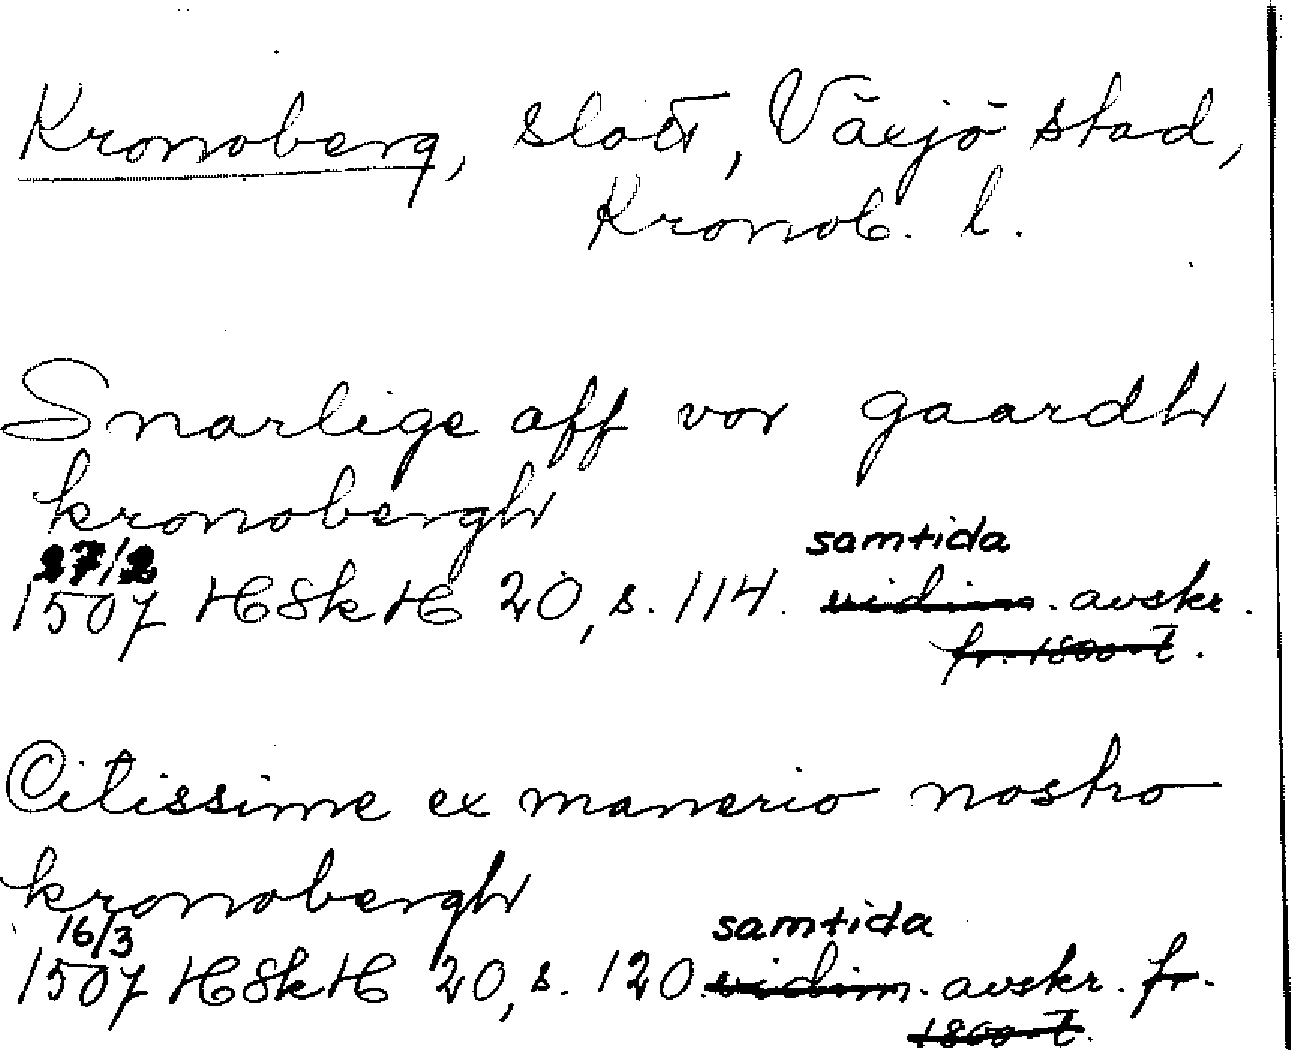 Kronoberg, slott, Växjö stad,
Kronob. l.
Snarlige aff vor gaardh
kronobergh
27/2 samtida
1507 HSkH 20, s. 114. vidim. avskr.
fr. 1800-t.
Citissime ex manerio nostro
kronobergh
16/3 samtida
1507 HSkH 20, s. 120. vidim. avskr. fr.
1800-t.